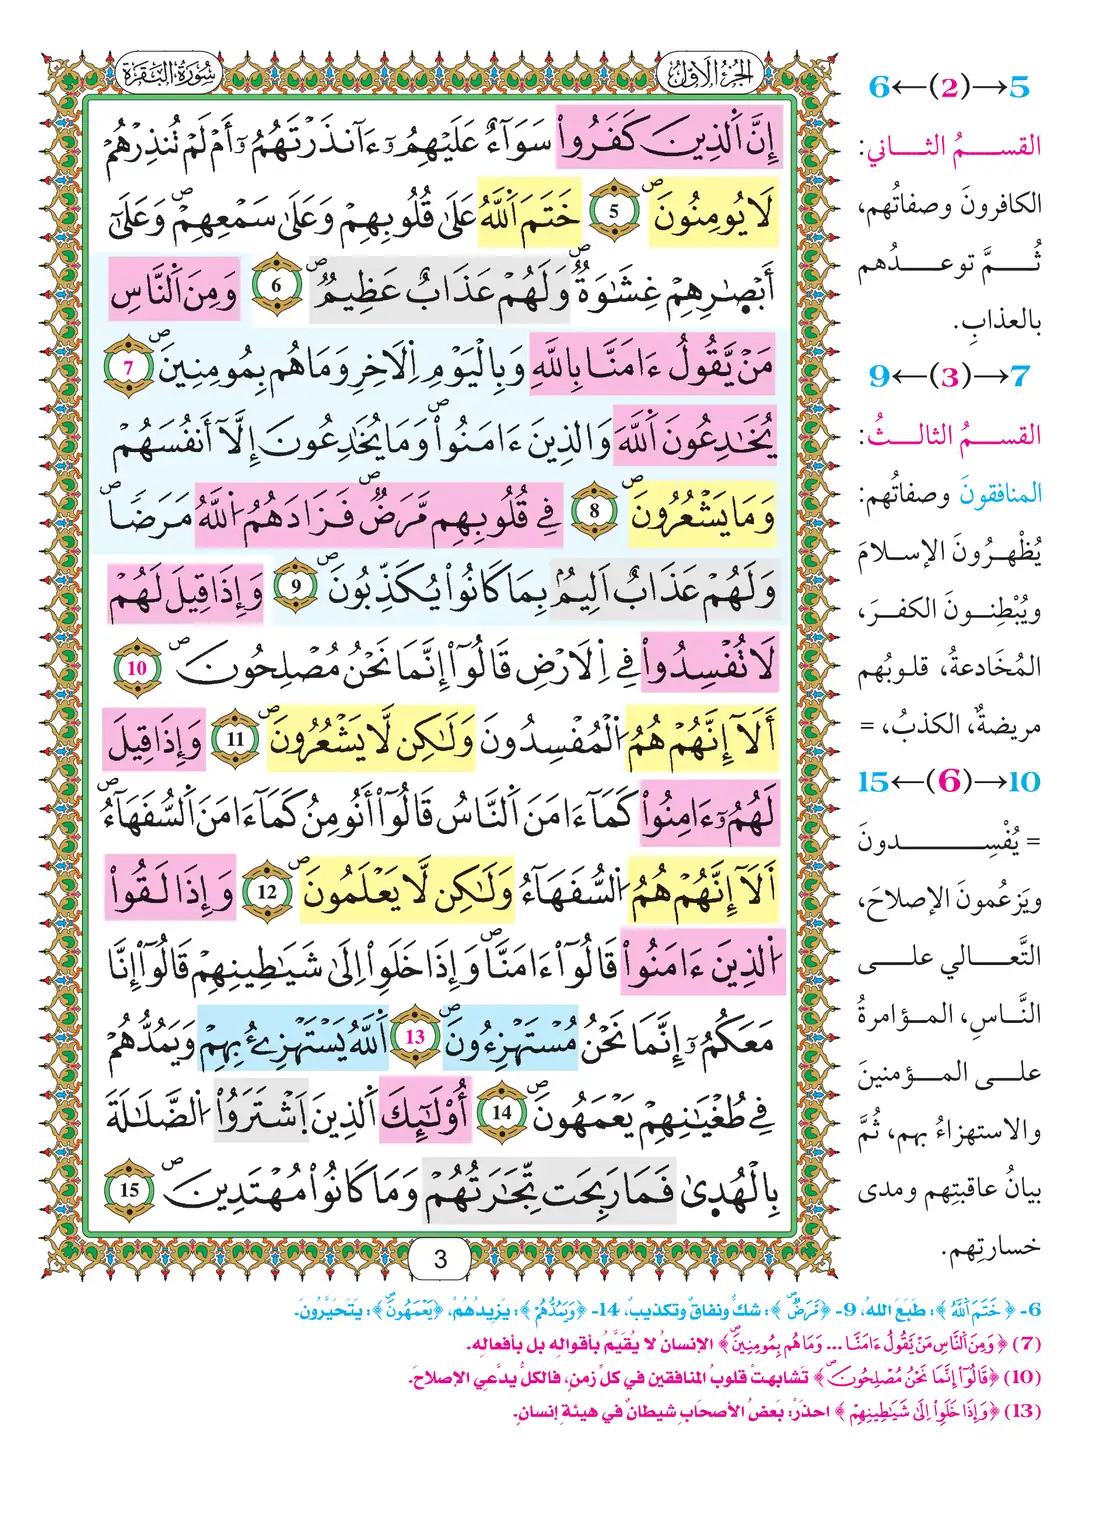 سُورَةُ البَقَرَةِ
الجُزْءُ الأَوَّلُ
إِنَّ اَ۬لذِينَ كَفَرُواْ سَوَآءٌ عَلَيْهِمُۥٓ ءَآنذَرْتَهُمُۥٓ أَمْ لَمْ تُنذِرْهُمْ
لَا يُومِنُونَۖ 5 خَتَمَ اَ۬للَّهُ عَلَىٰ قُلُوبِهِمْ وَعَلَىٰ سَمْعِهِمْۖ وَعَلَىٰٓ
أَبْصٰ۪رِهِمْ غِشَٰوَةٌۖ وَلَهُمْ عَذَابٌ عَظِيمٌۖ 6 وَمِنَ اَ۬لنَّاسِ
مَنْ يَّقُولُ ءَامَنَّا بِاللَّهِ وَبِالْيَوْمِ اِ۬لَاخِرِ وَمَا هُم بِمُومِنِينَۖ 7
يُخَٰدِعُونَ اَ۬للَّهَ وَالذِينَ ءَامَنُواْۖ وَمَا يُخَٰدِعُونَ إِلَّآ أَنفُسَهُمْ
وَمَا يَشْعُرُونَۖ 8 فِے قُلُوبِهِم مَّرَضٌۖ فَزَادَهُمُ اُ۬للَّهُ مَرَضاٗۖ
وَلَهُمْ عَذَابٌ اَلِيمُۢ بِمَا كَانُواْ يُكَذِّبُونَۖ 9 وَإِذَا قِيلَ لَهُمْ
لَا تُفْسِدُواْ فِے اِ۬لَارْضِ قَالُوٓاْ إِنَّمَا نَحْنُ مُصْلِحُونَۖ 10
أَلَآ إِنَّهُمْ هُمُ اُ۬لْمُفْسِدُونَ وَلَٰكِن لَّا يَشْعُرُونَۖ 11 وَإِذَا قِيلَ
لَهُمُۥٓ ءَامِنُواْ كَمَآ ءَامَنَ اَ۬لنَّاسُ قَالُوٓاْ أَنُومِنُ كَمَآ ءَامَنَ اَ۬لسُّفَهَآءُۖ
أَلَآ إِنَّهُمْ هُمُ اُ۬لسُّفَهَآءُ وَلَٰكِن لَّا يَعْلَمُونَۖ 12 وَإِذَا لَقُواْ
اُ۬لذِينَ ءَامَنُواْ قَالُوٓاْ ءَامَنَّاۖ وَإِذَا خَلَوِاْ اِلَىٰ شَيَٰطِينِهِمْ قَالُوٓاْ إِنَّا
مَعَكُمُۥٓ إِنَّمَا نَحْنُ مُسْتَهْزِءُونَۖ 13 اَ۬للَّهُ يَسْتَهْزِۓُ بِهِمْ وَيَمُدُّهُمْ
فِے طُغْيَٰنِهِمْ يَعْمَهُونَۖ 14 أُوْلَٰٓئِكَ اَ۬لذِينَ اَ۪شْتَرَوُاْ اُ۬لضَّلَٰلَةَ
بِالْهُد۪ىٰ فَمَا رَبِحَت تِّجَٰرَتُهُمْ وَمَا كَانُواْ مُهْتَدِينَۖ 15
3
5→(2)←6
القسمُ الثاني:
الكافرونَ وصفاتُهم،
ثُمَّ توعدُهم
بالعذابِ.
7→(3)←9
القسمُ الثالثُ:
المنافقونَ وصفاتُهم:
يُظْهِرُونَ الإسلامَ
ويُبْطِنونَ الكفرَ،
المُخَادعةُ، قلوبُهم
مريضةٌ، الكذبُ، =
10→(6)←15
= يُفْسِدونَ
ويَزعُمونَ الإصلاحَ،
التَّعالي على
النَّاسِ، المؤامرةُ
على المؤمنينَ
والاستهزاءُ بهم، ثُمَّ
بيانُ عاقبتِهم ومدى
خسارتِهم.
6- ﴿خَتَمَ اَ۬للَّهُ﴾: طَبَعَ اللهُ، 9- ﴿مَّرَضٌۖ﴾: شكٌّ ونفاقٌ وتكذيبٌ، 14- ﴿وَيَمُدُّهُمْ﴾: يَزِيدُهُمْ، ﴿يَعْمَهُونَۖ﴾: يَتَحَيَّرُونَ.
(7) ﴿وَمِنَ اَ۬لنَّاسِ مَنْ يَّقُولُ ءَامَنَّا ... وَمَا هُم بِمُومِنِينَۖ﴾ الإنسانُ لا يُقَيَّمُ بأقوالِه بل بأفعالِه.
(10) ﴿قَالُوٓاْ إِنَّمَا نَحْنُ مُصْلِحُونَۖ﴾ تَشابهتْ قلوبُ المنافقين في كلِّ زمنٍ، فالكلُّ يدَّعي الإصلاحَ.
(13) ﴿وَإِذَا خَلَوِاْ اِلَىٰ شَيَٰطِينِهِمْ﴾ احذرْ: بَعضُ الأصحَابِ شيطانٌ في هيئةِ إنسانٍ.